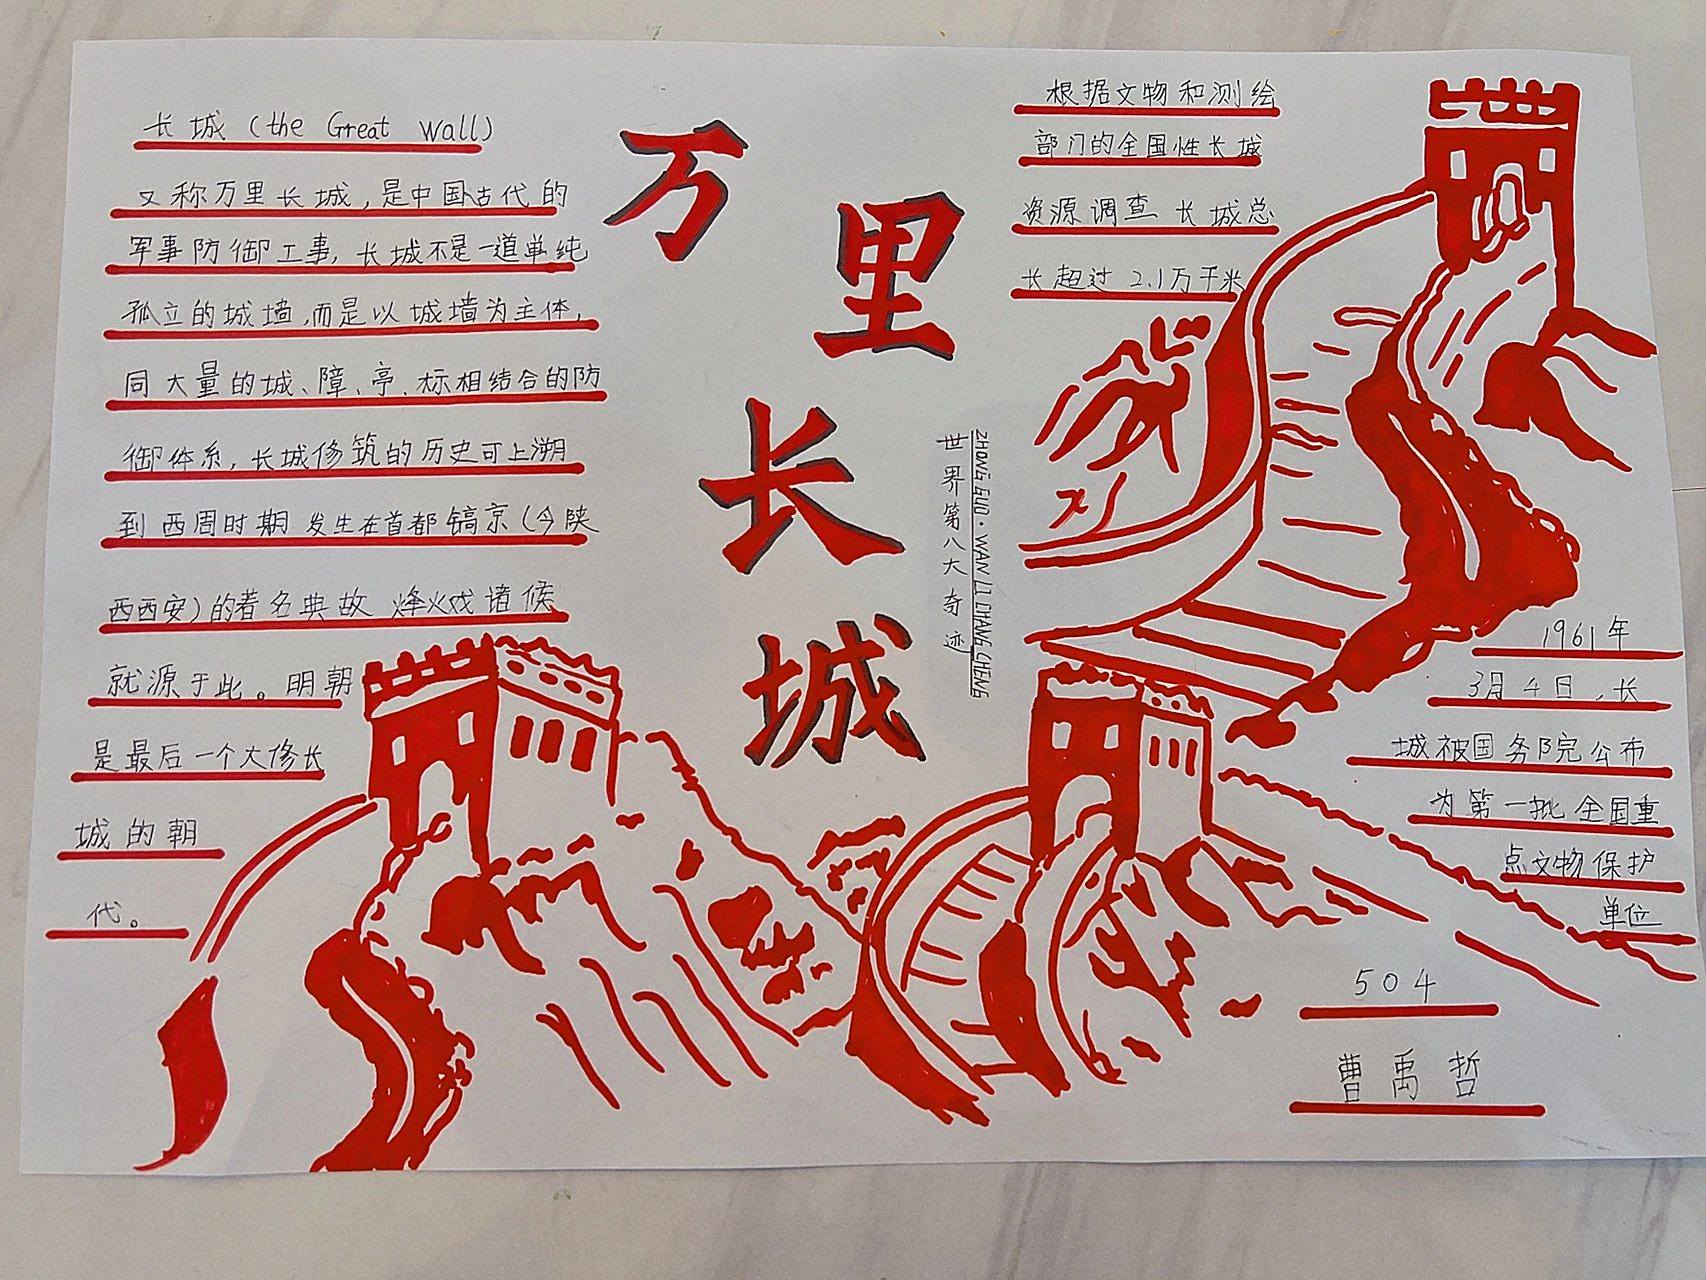 长城(the Great Wall)
又称万里长城,是中国古代的
军事防御工事,长城不是一道单纯
孤立的城墙,而是以城墙为主体,
同大量的城、障、亭、标相结合的防
御体系,长城修筑的历史可上溯
到西周时期发生在首都镐京(今陕
西西安)的著名典故烽火戏诸候
就源于此。明朝
是最后一个大修长
城的朝
代。
万里长城
世界第八大奇迹
ZHONG GUO·WAN LI CHANG CHENG
根据文物和测绘
部门的全国性长城
资源调查长城总
长超过2.1万千米
1961年
3月4日,长
城被国务院公布
为第一批全国重
点文物保护
单位
504
曹禹哲